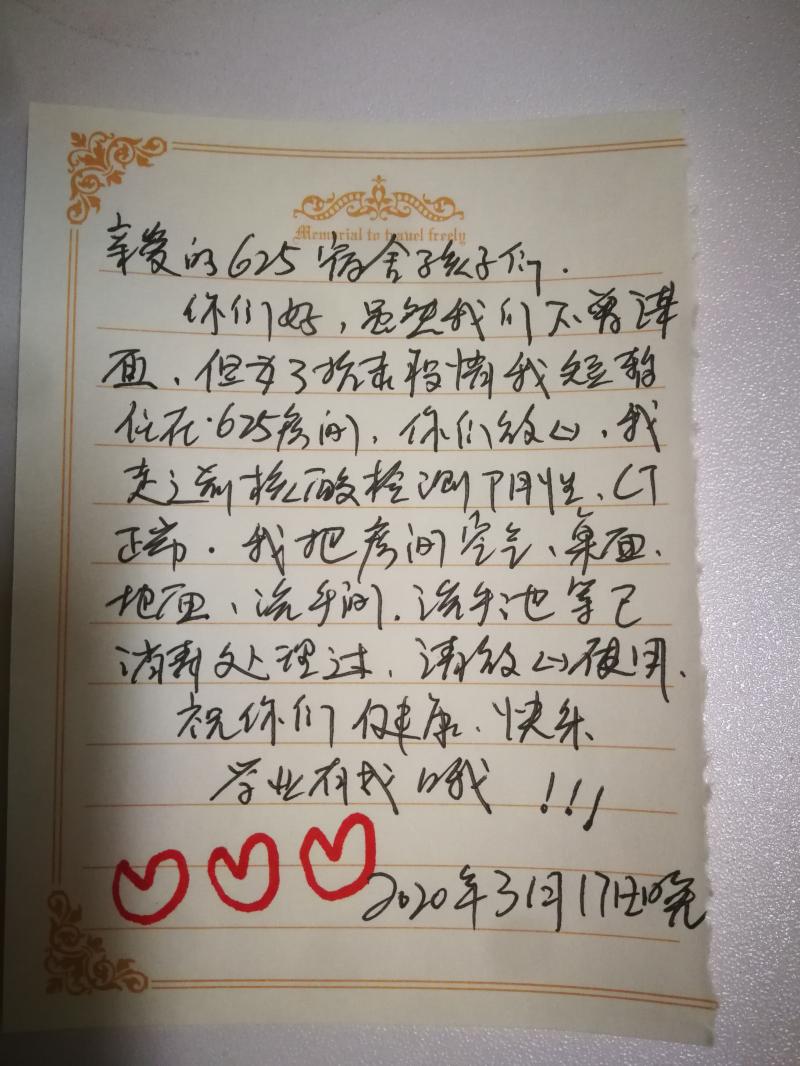 Memorial to travel freely
亲爱的625宿舍孩子们.
你们好，虽然我们不曾谋
面、但为了抗击疫情我短暂
住在625房间，你们放心，我
走之前核酸检测阴性、CT
正常．我把房间空气、桌面、
地面、洗手间．洗手池等已
消毒处理过，请放心使用、
祝你们健康、快乐
学业有成哦！！！
2020年3月17日晚